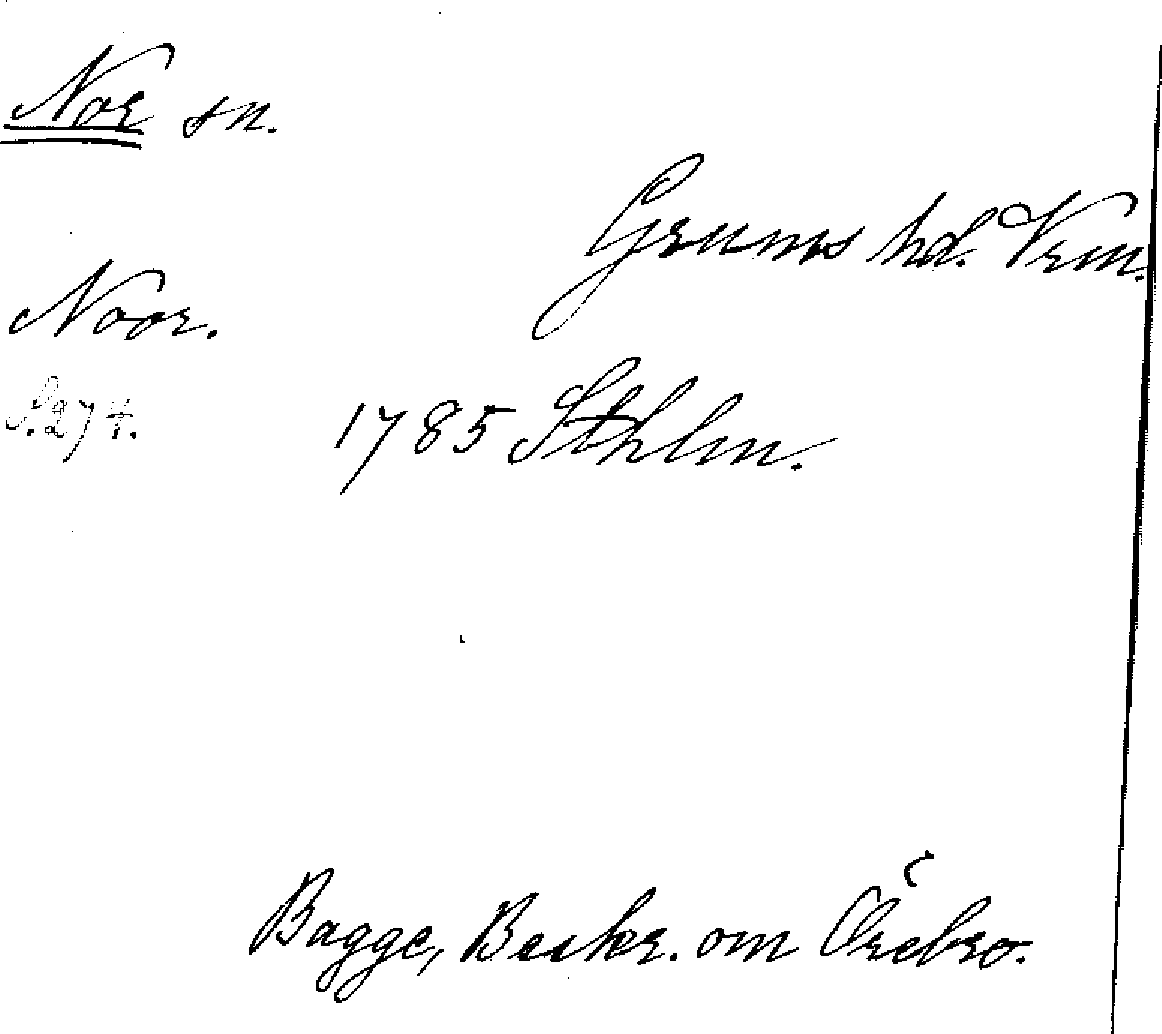 Nor sn.
Grums hd. Vrm.
Noor.
S. 274.
1785 Sthlm.
Bagge, Beskr. om Örebro.